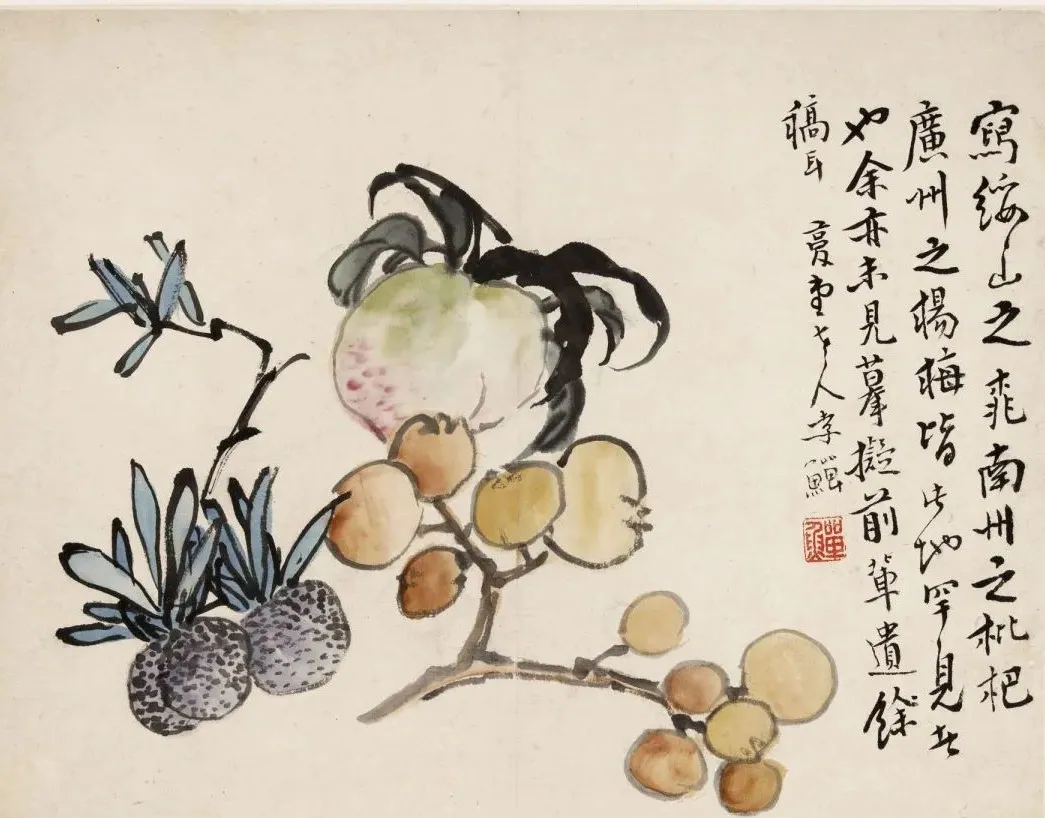 寫綏山之桃南州之枇杷
廣州之楊梅皆此地罕見者
也余亦未見摹擬前輩遺餘
稿耳 复堂老人李鱓